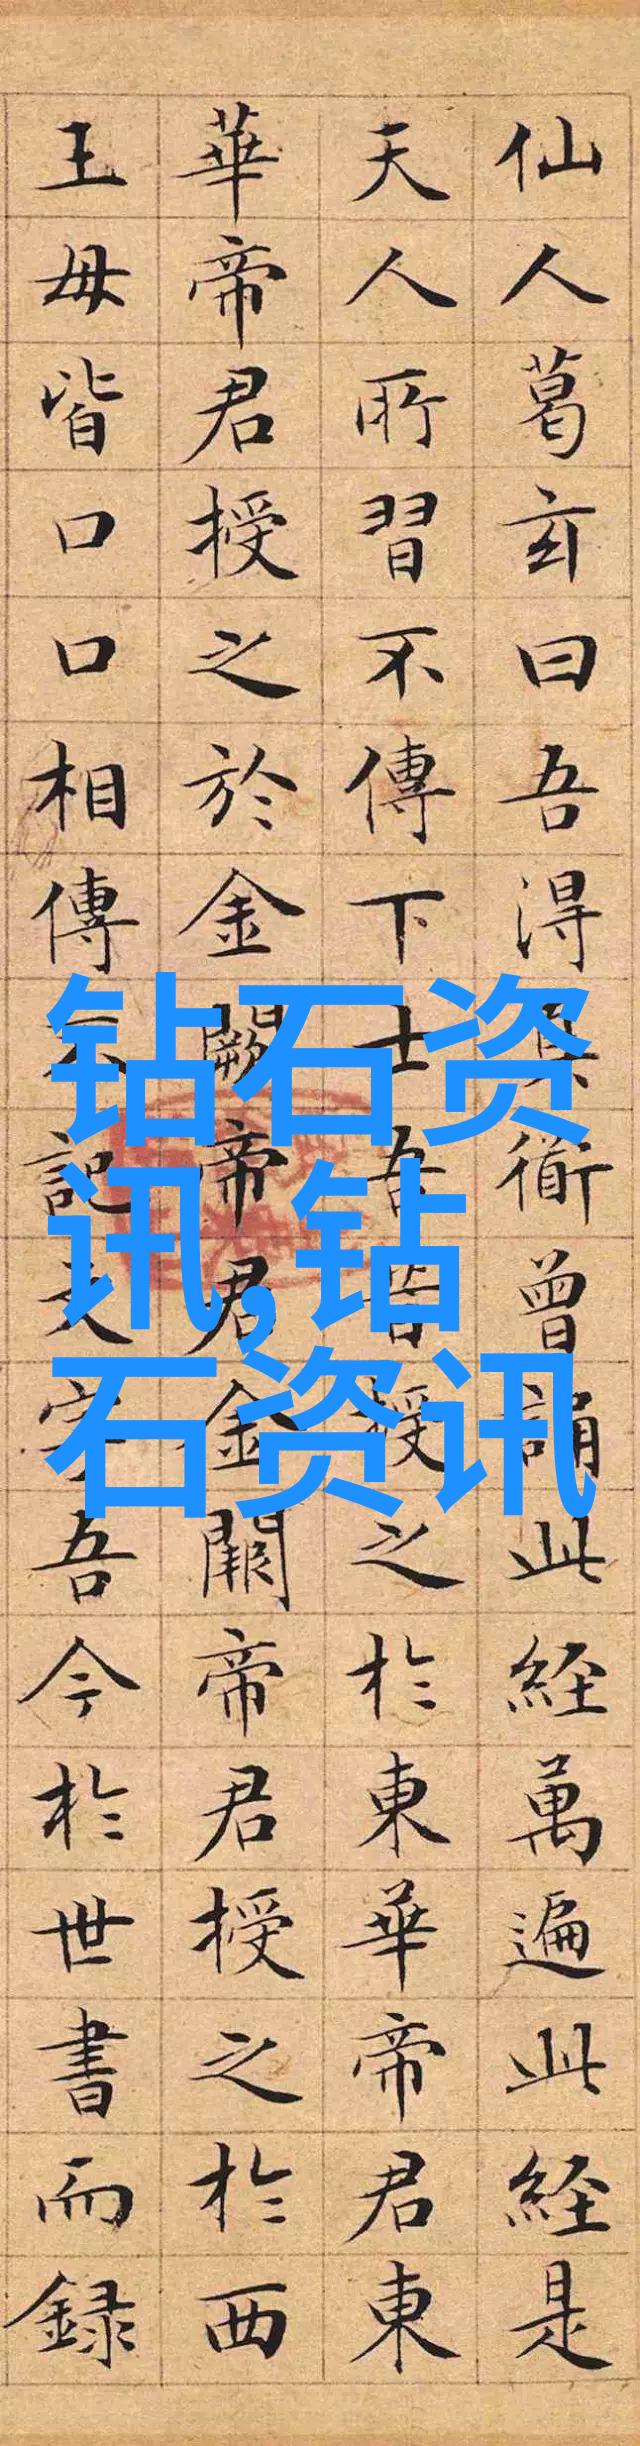 仙人葛玄曰吾淂真衜曾誦此経萬遍此経是
天人所習不傳下士吾昔授之於東華帝君東
華帝君授之於金闕帝君金闕帝君授之於西
王母皆口口相傳不記文字吾今於世書而録
钻石资
讯,钻
石资讯